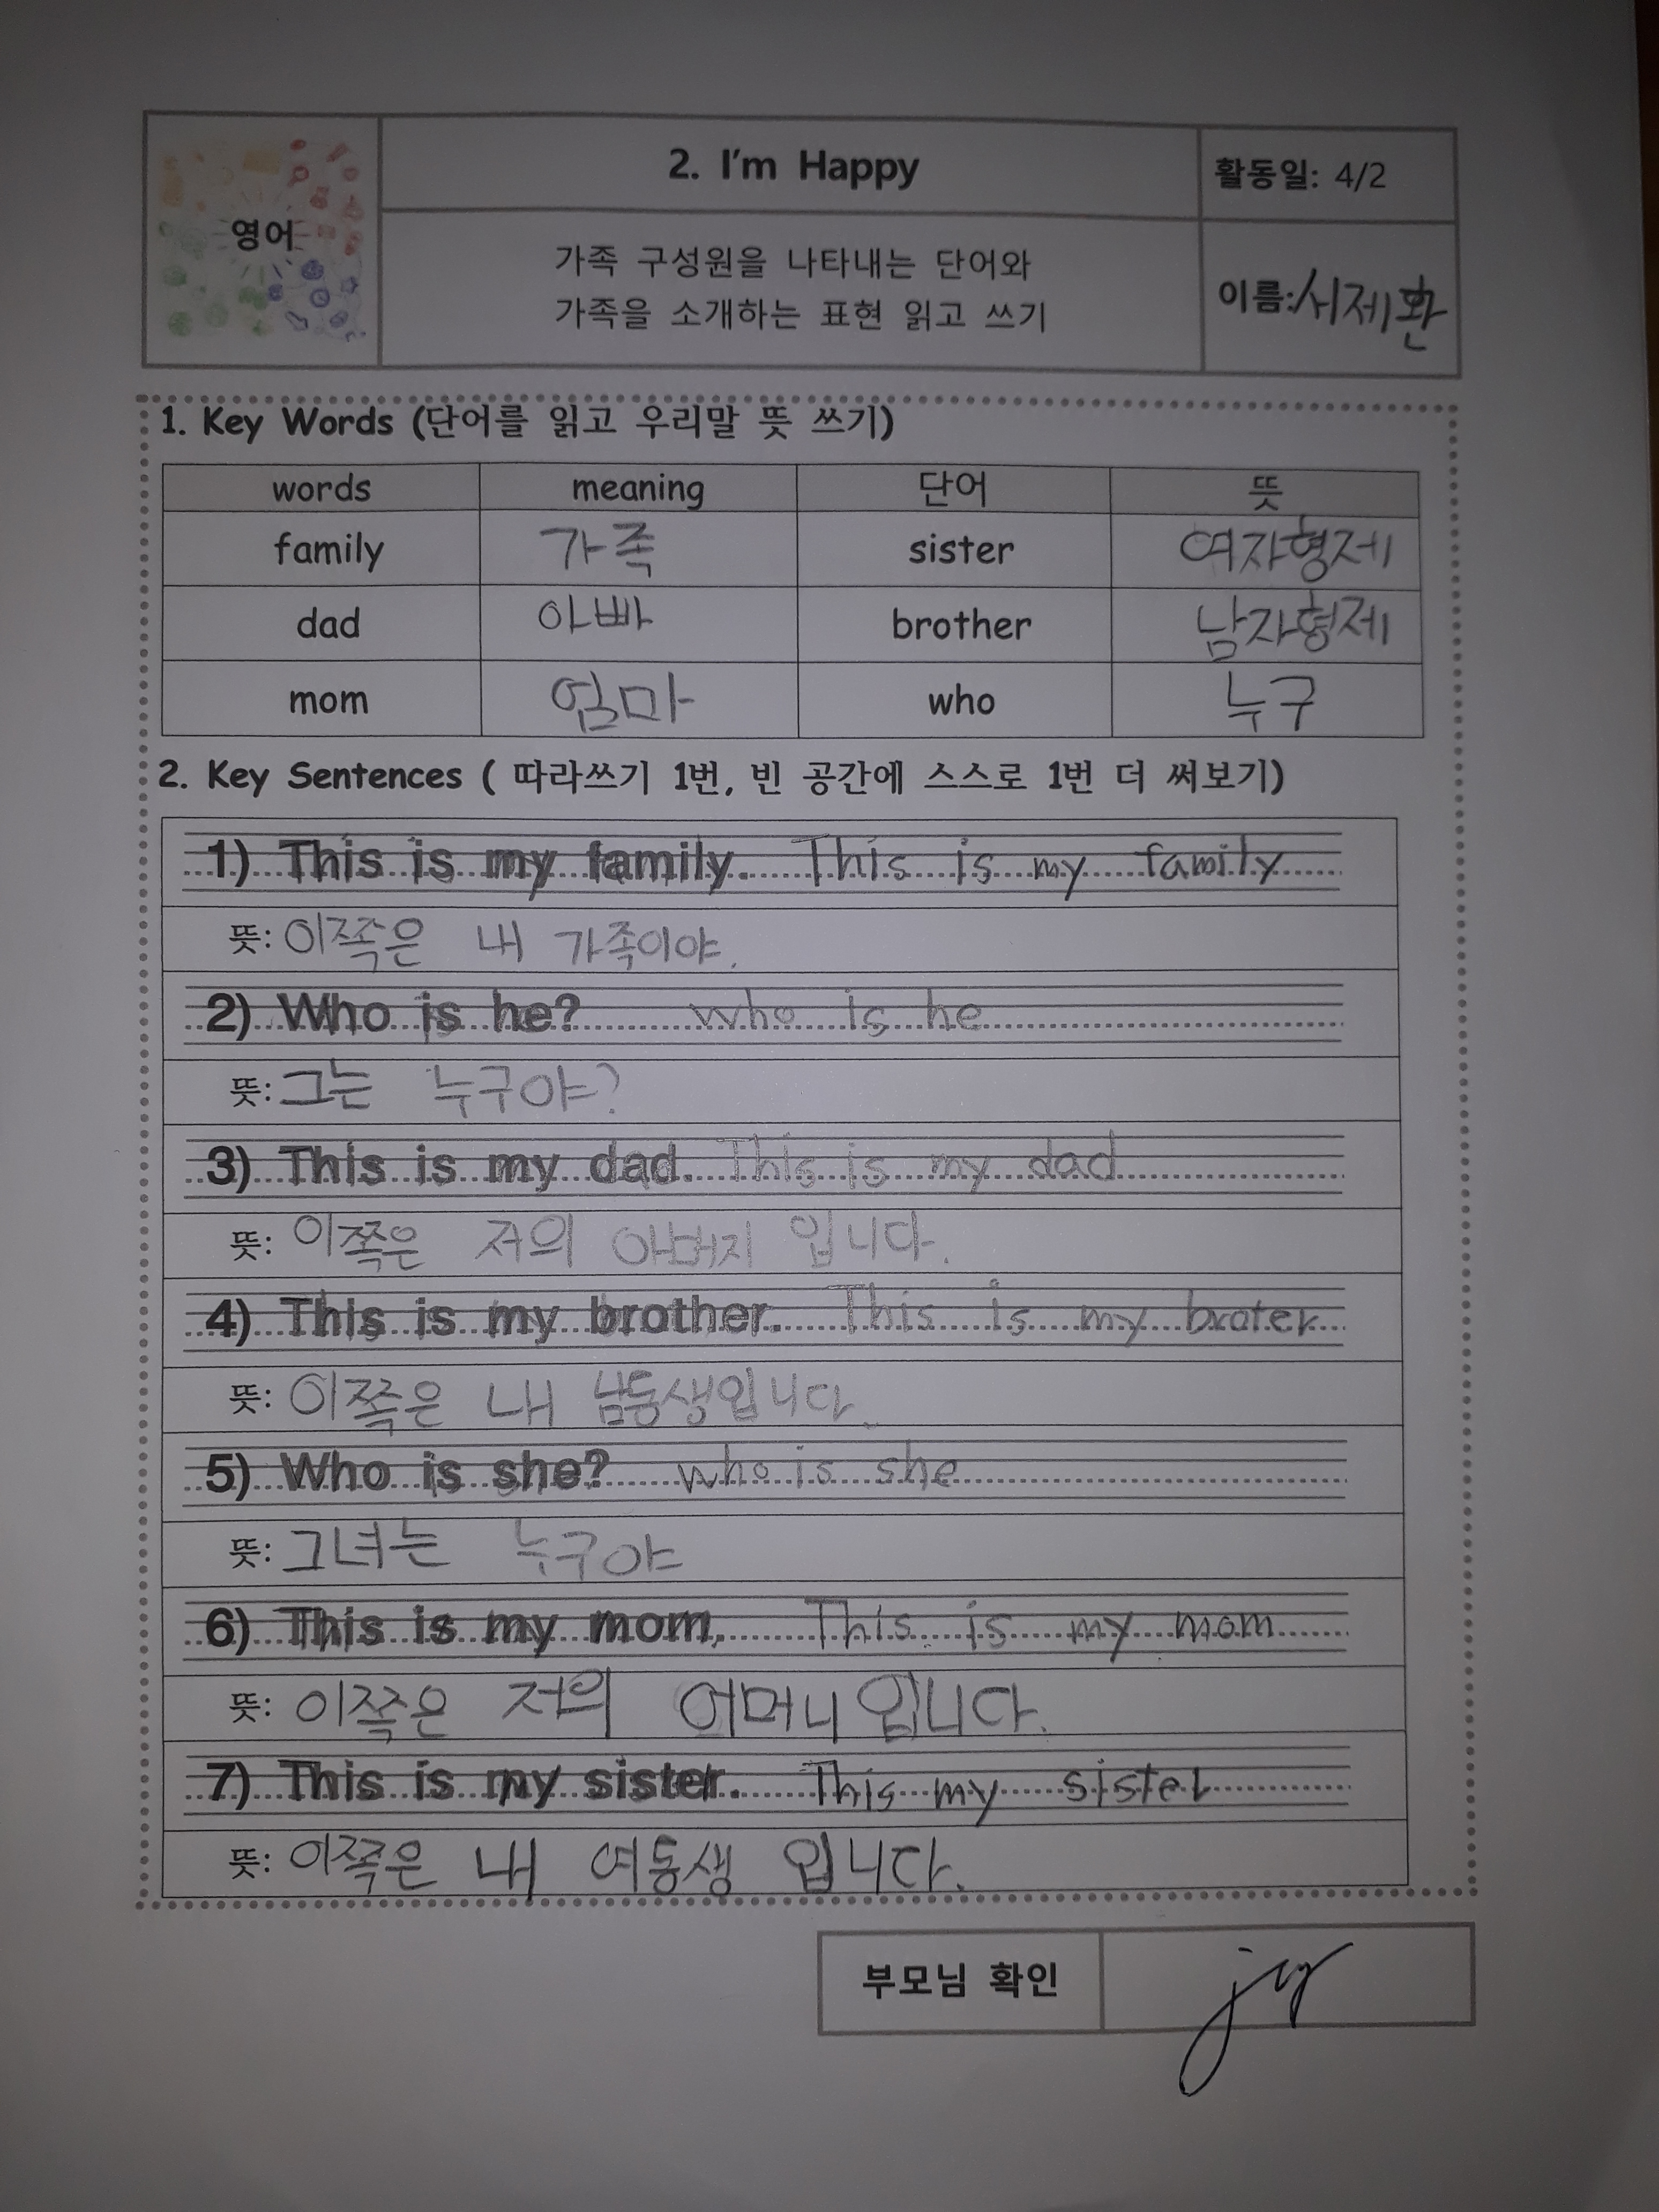 영어
2. I'm Happy
활동일: 4/2
가족 구성원을 나타내는 단어와
가족을 소개하는 표현 읽고 쓰기
이름: 서제환
1. Key Words (단어를 읽고 우리말 뜻 쓰기)
words meaning 단어 뜻
family 가족 sister 여자형제
dad 아빠 brother 남자형제
mom 엄마 who 누구
2. Key Sentences ( 따라쓰기 1번, 빈 공간에 스스로 1번 더 써보기)
1) This is my family. This is my family
뜻: 이쪽은 내 가족이야.
2) Who is he? who is he
뜻: 그는 누구야?
3) This is my dad. This is my dad
뜻: 이쪽은 저의 아버지 입니다.
4) This is my brother. This is my broter
뜻: 이쪽은 내 남동생입니다.
5) Who is she? who is she
뜻: 그녀는 누구야
6) This is my mom. This is my mom
뜻: 이쪽은 저의 어머니 입니다.
7) This is my sister. This my sister
뜻: 이쪽은 내 여동생 입니다.
부모님 확인